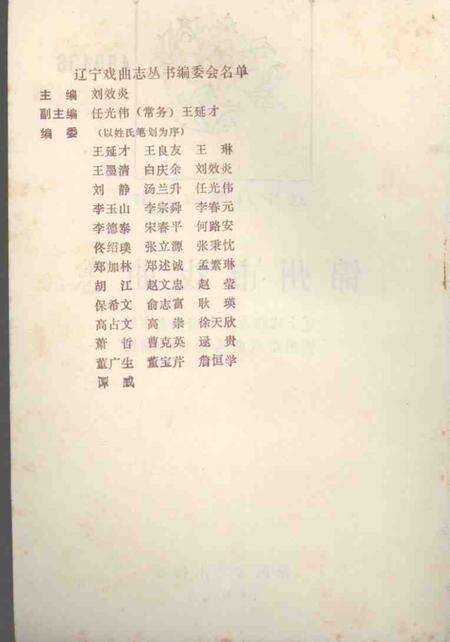 辽宁戏曲志丛书编委会名单
主 编 刘效炎
副主编 任光伟（常务）王延才
编 委 （以姓氏笔划为序）
王延才 王良友 王 琳
王墨清 白庆余 刘效炎
刘 静 汤兰升 任光伟
李玉山 李宗舜 李春元
李德泰 宋春平 何路安
佟绍璞 张立源 张秉忱
郑加林 郑述诚 孟繁琳
胡 江 赵文忠 赵 莹
保希文 俞志富 耿 瑛
高占文 高 崇 徐天欣
萧 哲 曹克英 逯 贵
董广生 董宝芹 詹恒学
谭 威